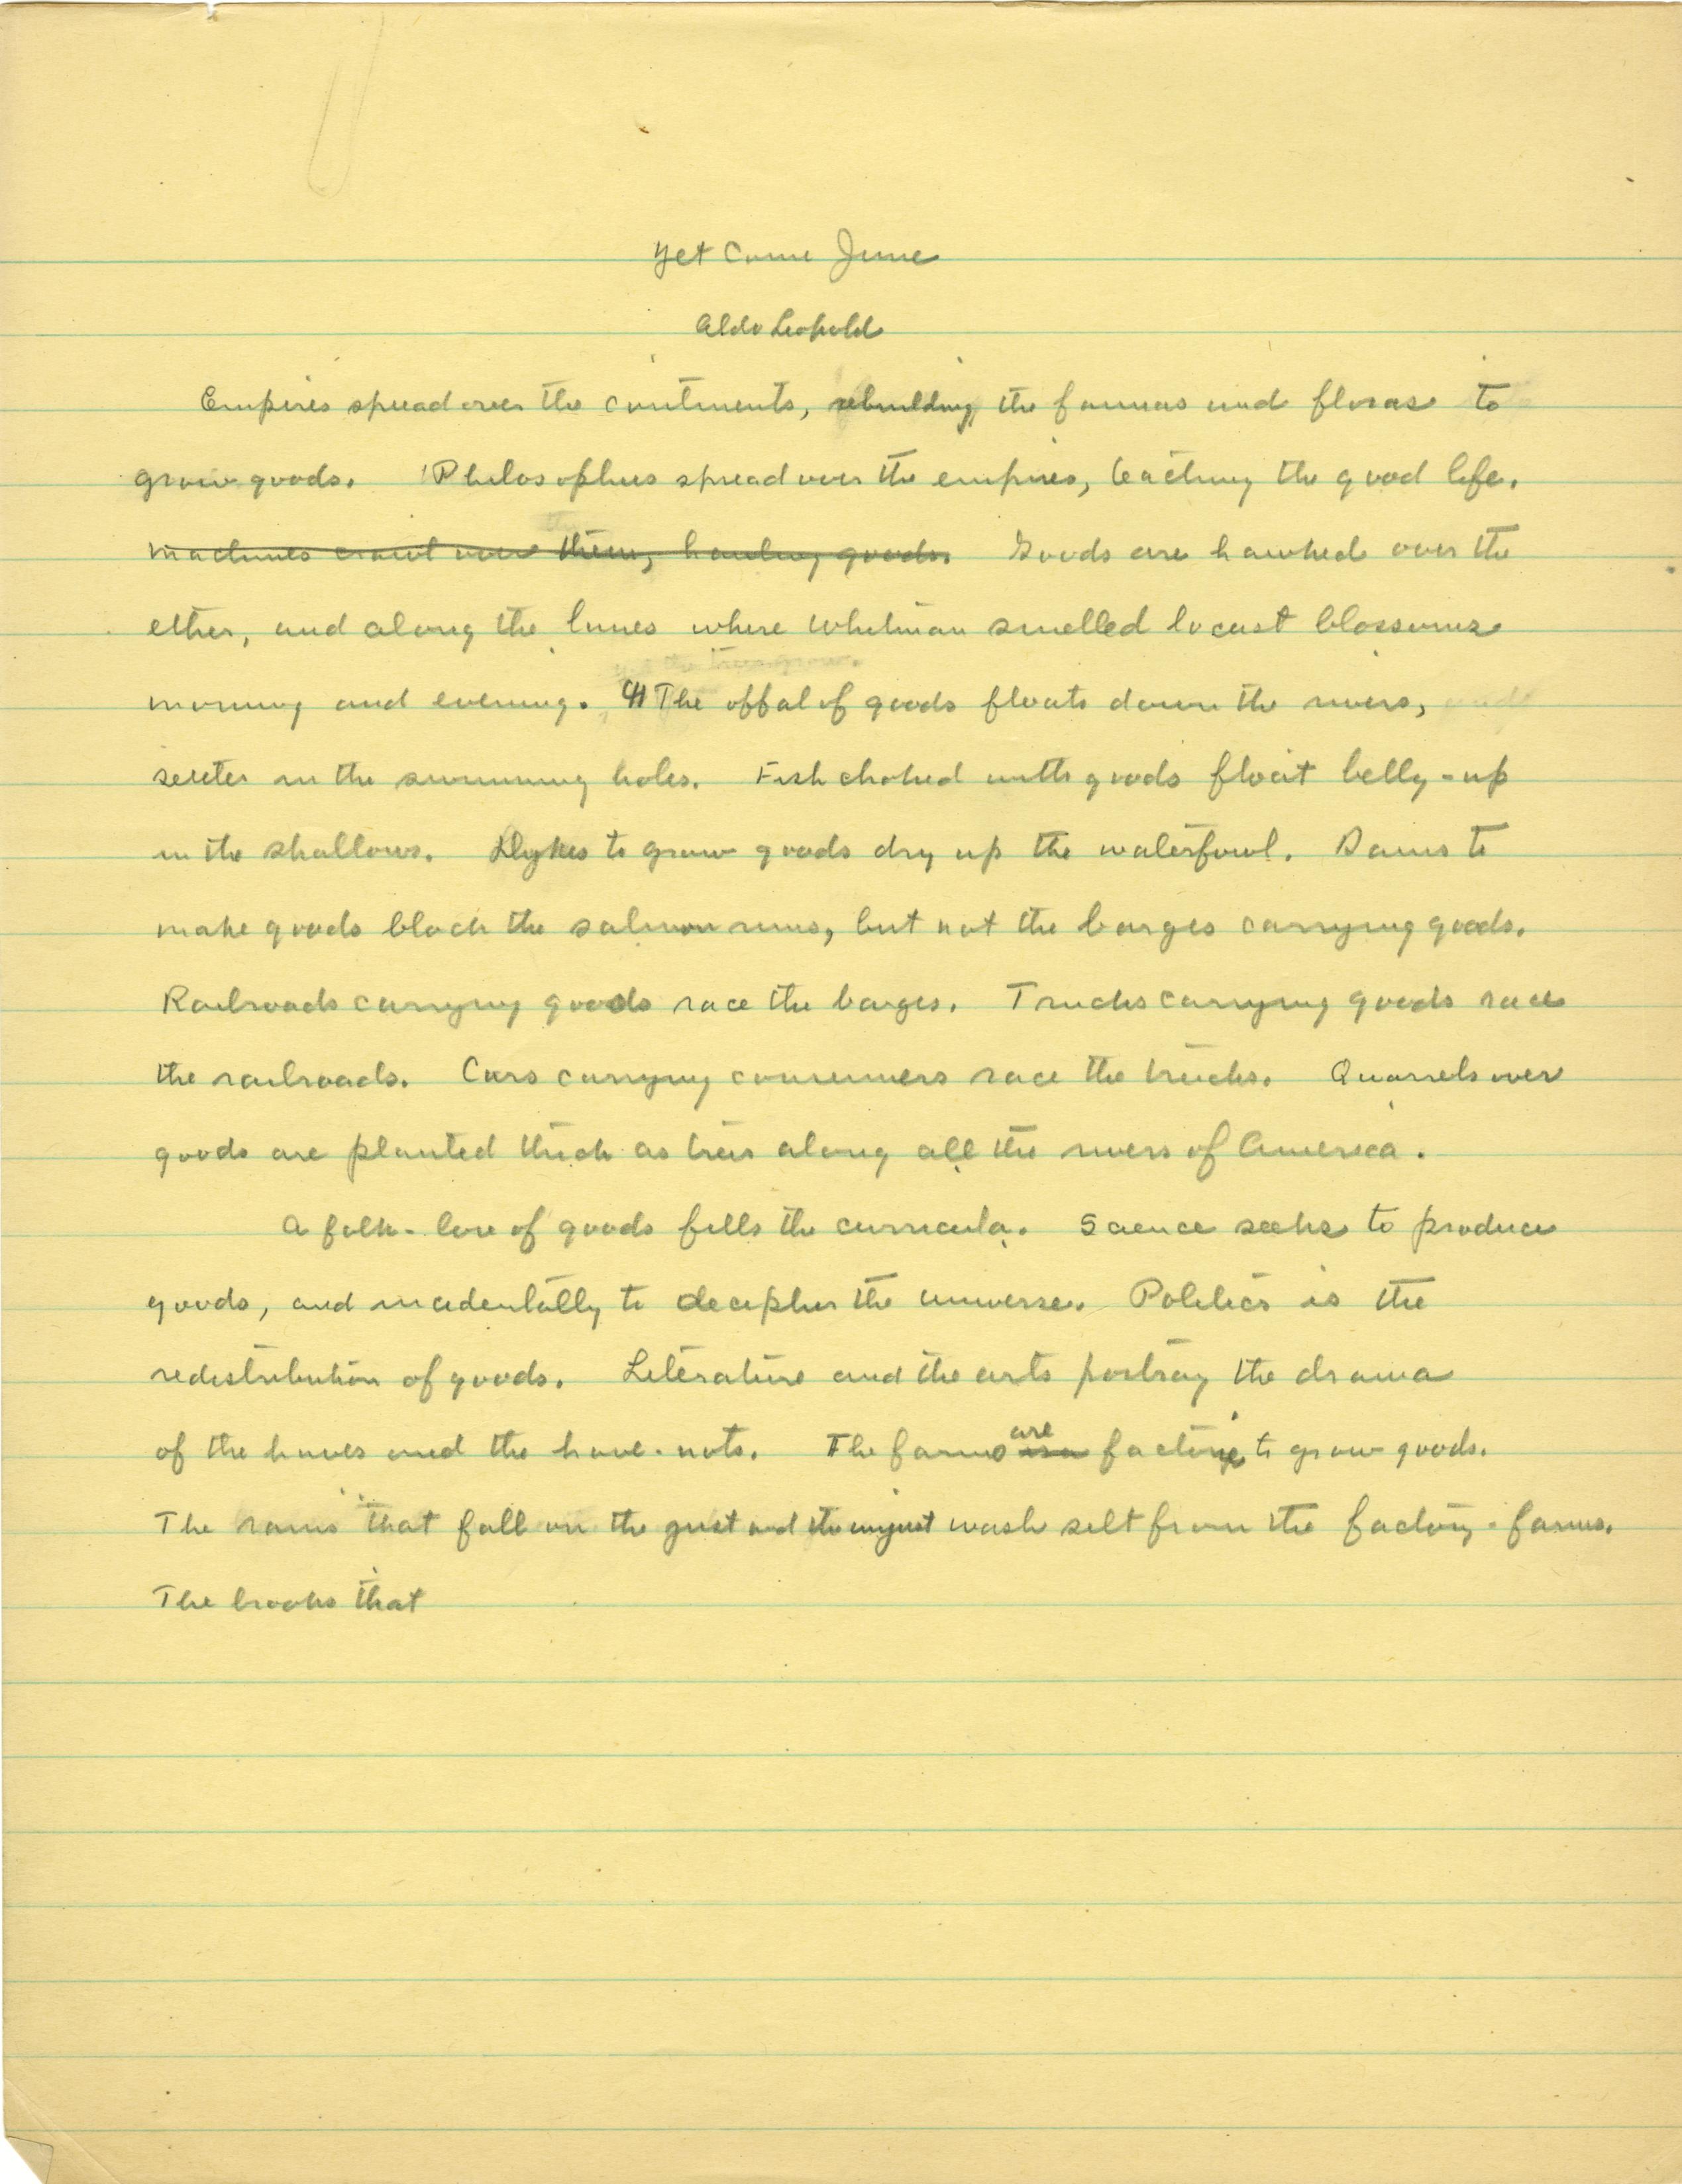 Yet Come June
Aldo Leopold
Empires spread over the continents, rebuilding the faunas and floras to
grow goods. Philosophies spread over the empires, teaching the good life.
machines crawl over them, hauling goods. Goods are hawked over the
ether, and along the lanes where Whitman smelled locust blossoms
morning and evening. ¶ The offal of goods floats down the rivers,
settles in the swimming holes. Fish choked with goods float belly-up
in the shallows. Dykes to grow goods dry up the waterfowl. Dams to
make goods block the salmon runs, but not the barges carrying goods.
Railroads carrying goods race the barges. Trucks carrying goods race
the railroads. Cars carrying consumers race the trucks. Quarrels over
goods are planted thick as trees along all the rivers of America.
A folk-lore of goods fills the curricula. Science seeks to produce
goods, and incidentally to decipher the universe. Politics is the
redistribution of goods. Literature and the arts portray the drama
of the haves and the have-nots. The farms are factories to grow goods.
The rains that fall on the just and the unjust wash silt from the factory-farms.
The brooks that